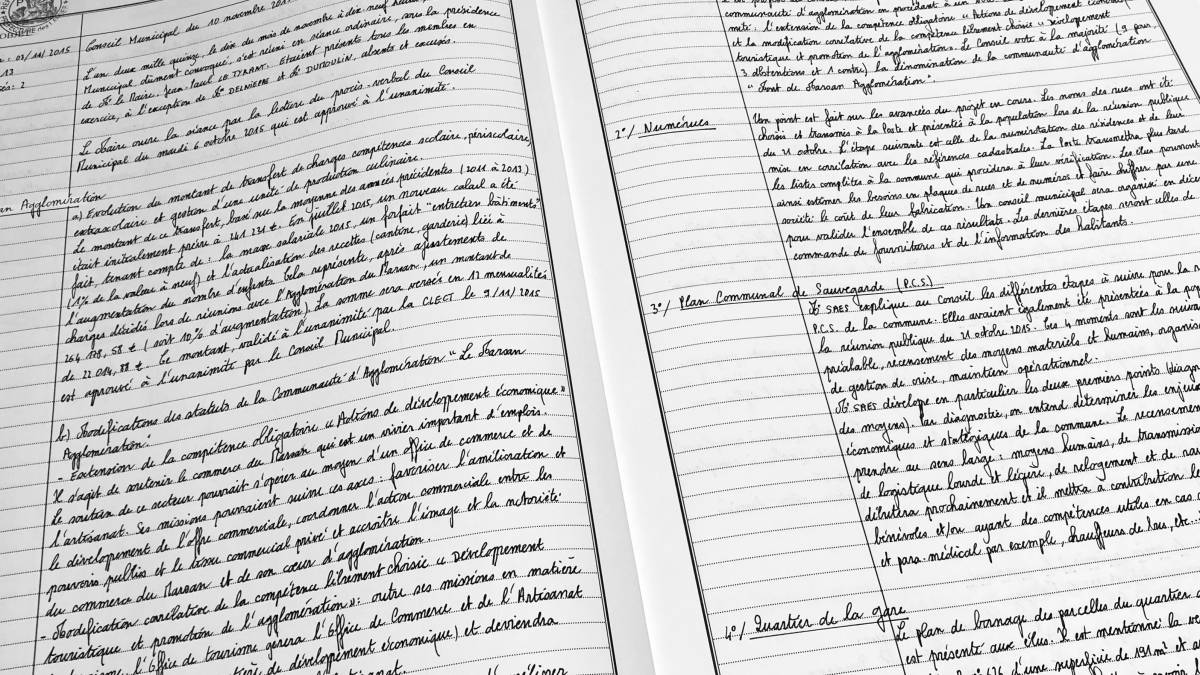 Conseil Municipal du 10 novembre 2015
: 03/11/2015
13
és: 2
L'an deux mille quinze, le dix du mois de novembre à dix-neuf heures,
Municipal dûment convoqué, s'est réuni en séance ordinaire, sous la présidence
de M. le Maire, Jean-Paul LE TYRANT. Etaient présents tous les membres en
exercice, à l'exception de M. DELNIEPPE et M. DUMOULIN, absents et excusés.
Le Maire ouvre la séance par la lecture du procès-verbal du Conseil
Municipal du mardi 6 octobre 2015 qui est approuvé à l'unanimité.
an Agglomération
a) Evolution du montant de transfert de charges compétences scolaire, périscolaire,
extrascolaire et gestion d'une unité de production culinaire.
Le montant de ce transfert, basé sur la moyenne des années précédentes (2011 à 2013)
était initialement prévu à 241 231 €. En juillet 2015, un nouveau calcul a été
fait, tenant compte de : la masse salariale 2015, un forfait "entretien bâtiments"
(1% de la valeur à neuf) et l'actualisation des recettes (cantine, garderie) liée à
l'augmentation du nombre d'enfants. Cela représente, après ajustements de
charges décidés lors de réunions avec l'Agglomération du Marsan, un montant de
264 178,58 € (soit 10% d'augmentation). La somme sera versée en 12 mensualités
de 22 014,88 €. Ce montant, validé à l'unanimité par la CLECT le 9/11/2015
est approuvé à l'unanimité par le Conseil Municipal.
b) Modifications des statuts de la Communauté d'Agglomération "Le Marsan
Agglomération".
- Extension de la compétence obligatoire « Actions de développement économique »
Il s'agit de soutenir le commerce du Marsan qui est un vivier important d'emplois.
Le soutien de ce secteur pourrait s'opérer au moyen d'un office de commerce et de
l'artisanat. Ses missions pourraient suivre ces axes : favoriser l'amélioration et
le développement de l'offre commerciale, coordonner l'action commerciale entre les
pouvoirs publics et le tissu commercial privé et accroître l'image et la notoriété
du commerce du Marsan et de son cœur d'agglomération.
- Modification corrélative de la compétence librement choisie « Développement
touristique et promotion de l'agglomération » : outre ses missions en matière
, l'Office de tourisme gérera l'Office de Commerce et de l'Artisanat
de développement économique) et deviendra
communauté d'agglomération en procédant à un
mité. L'extension de la compétence obligatoire « Actions de développement économique
et la modification corrélative de la compétence librement choisie « Développement
touristique et promotion de l'agglomération. Le Conseil vote à la majorité (9 pour,
3 abstentions et 1 contre) la dénomination de la communauté d'agglomération
"Mont de Marsan Agglomération".
2°/ Numérues
Un point est fait sur les avancées du projet en cours. Les noms des rues ont été
choisis et transmis à la Poste et présentés à la population lors de la réunion publique
du 21 octobre. L'étape suivante est celle de la numérotation des résidences et de leur
mise en corrélation avec les références cadastrales. La Poste transmettra plus tard
les listes complètes à la commune qui procèdera à leur vérification. Les élus pourront
ainsi estimer les besoins en plaques de rues et de numéros et faire chiffrer par une
société le coût de leur fabrication. Un conseil municipal sera organisé en déce
pour valider l'ensemble de ces résultats. Les dernières étapes seront celles de
commande de fournitures et de l'information des habitants.
3°/ Plan Communal de Sauvegarde (P.C.S.)
M. SAES explique au Conseil les différentes étapes à suivre pour la r
P.C.S. de la commune. Elles avaient également été présentées à la pop
la réunion publique du 21 octobre 2015. Ces 4 moments sont les suivan
préalable, recensement des moyens matériels et humains, organis
de gestion de crise, maintien opérationnel.
M. SAES développe en particulier les deux premiers points (diagn
des moyens). Par diagnostic, on entend déterminer les enjeu
économiques et stratégiques de la commune. Le recensement
prendre au sens large : moyens humains, de transmission
de logistique lourde et légère, de relogement et de rav
débutera prochainement et il mettra à contribution le
bénévoles et/ou ayant des compétences utiles en cas d
et para-médical par exemple, chauffeurs de bus, etc...)
4°/ Quartier de la gare
Le plan de bornage des parcelles du quartier d
est présenté aux élus. Il est mentionné la ve
n° 626 d'une superficie de 191 m² et a